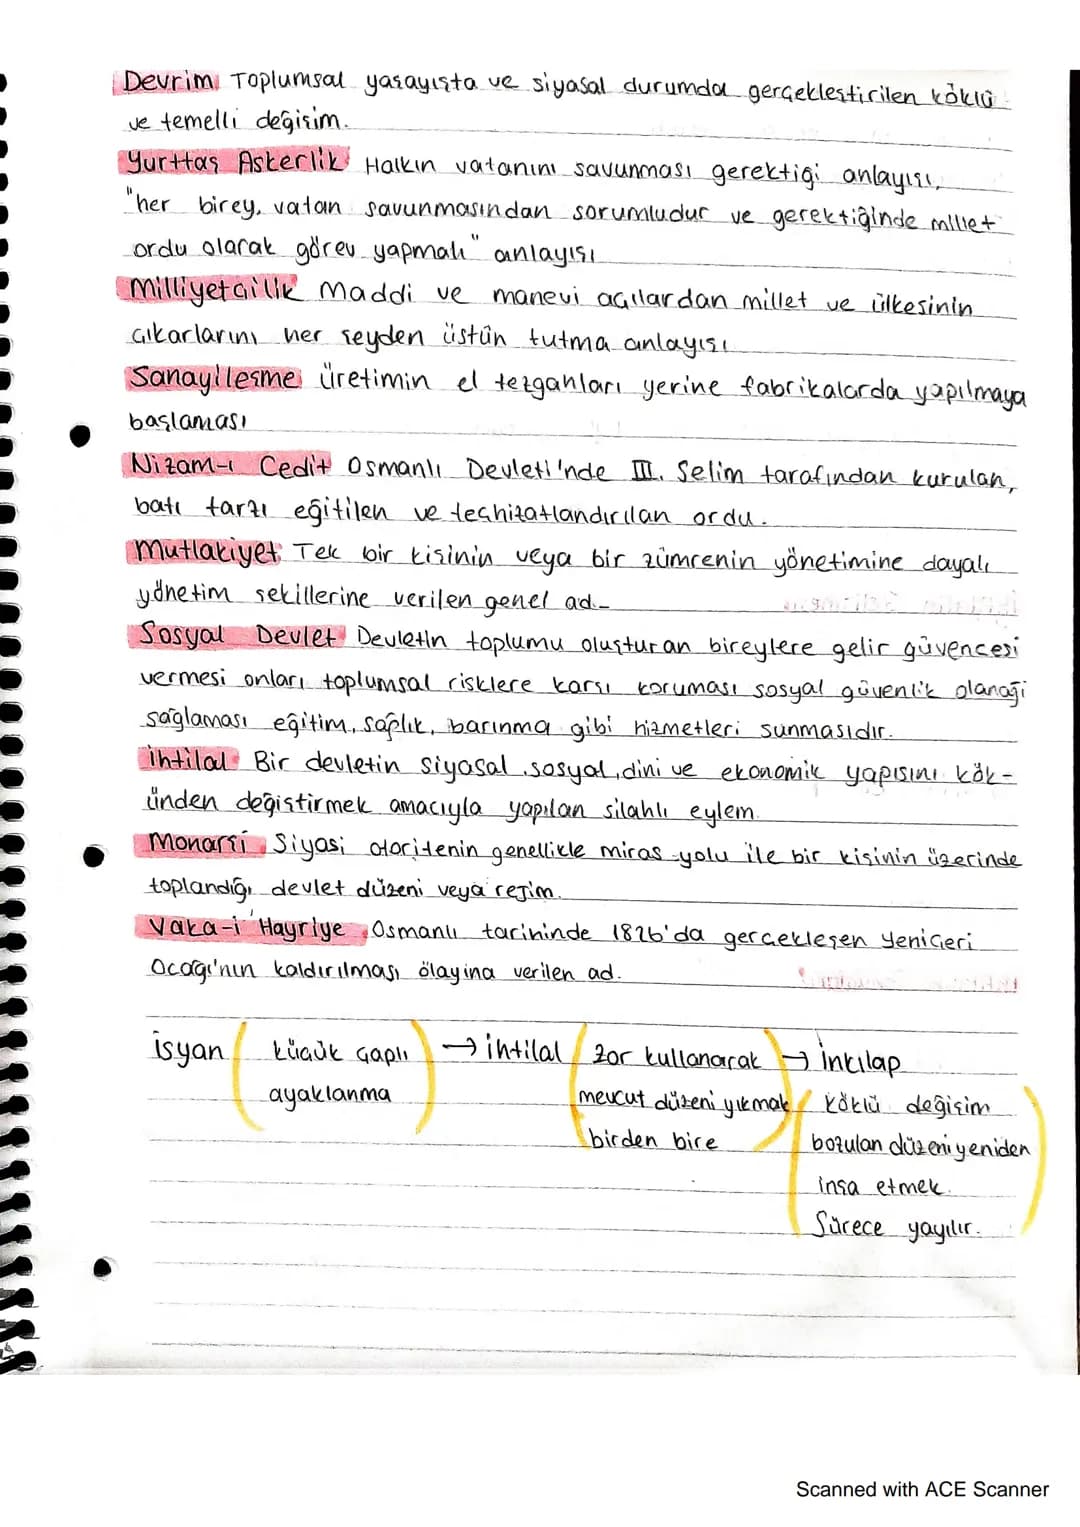 Devrim Toplumsal yaşayışta ve siyasal durumda gerçekleştirilen köklü
ve temelli değişim.
Yurttaş Askerlik Halkın vatanını savunması gerektiği anlayışı,
"her birey, vatan savunmasından sorumludur ve gerektiğinde millet
ordu olarak görev yapmalı" anlayışı
Milliyetçilik Maddi ve manevi açılardan millet ve ülkesinin
çıkarlarını her şeyden üstün tutma anlayışı
Sanayileşme üretimin el tezgahları yerine fabrikalarda yapılmaya
başlaması
Nizam-ı Cedit Osmanlı Devleti'nde III. Selim tarafından kurulan,
batı tarzı eğitilen ve teçhizatlandırılan ordu.
Mutlakiyet Tek bir kişinin veya bir zümrenin yönetimine dayalı
yönetim şekillerine verilen genel ad.
Sosyal Devlet Devletin toplumu oluşturan bireylere gelir güvencesi
vermesi onları toplumsal risklere karşı koruması sosyal güvenlik olanağı
sağlaması eğitim, sağlık, barınma gibi hizmetleri sunmasıdır.
İhtilal Bir devletin siyasal, sosyal, dini ve ekonomik yapısını kök-
ünden değiştirmek amacıyla yapılan silahlı eylem.
Monarşi Siyasi otoritenin genellikle miras yolu ile bir kişinin üzerinde
toplandığı devlet düzeni veya rejim.
Vaka-i Hayriye Osmanlı tarihinde 1826'da gerçekleşen Yeniçeri
Ocağı'nın kaldırılması olayına verilen ad.
isyan ( küçük çaplı ) → ihtilal ( zor kullanarak ) → İnkılap
ayaklanma mevcut düzeni yıkmak ( köklü değişim
birden bire bozulan düzeni yeniden
inşa etmek.
Sürece yayılır. )
Scanned with ACE Scanner